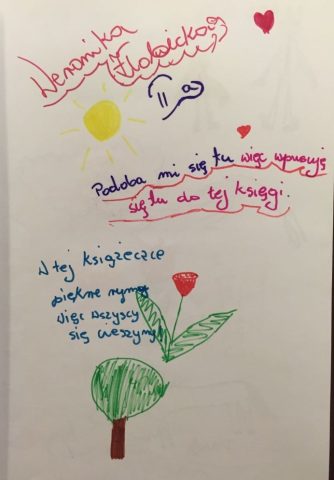 Weronika
II a
Podoba mi się tu więc wpisuję
się tu do tej księgi.
W tej książeczce
piękne rymy
więc wszyscy
się cieszymy!